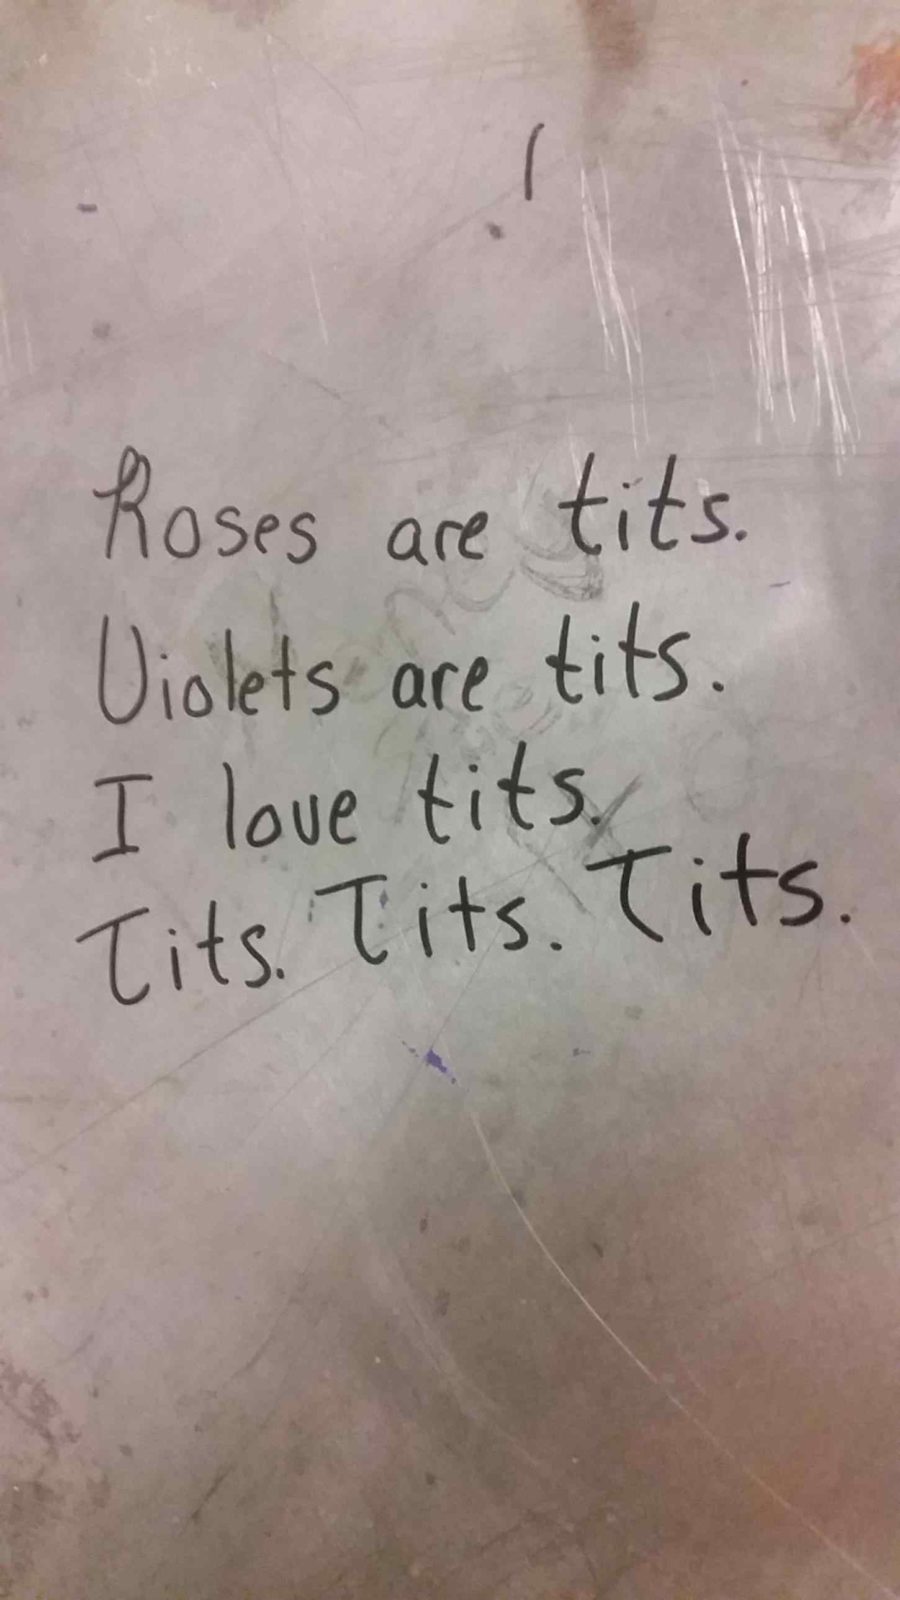 Roses are tits.
Violets are tits.
I love tits.
Tits. Tits. Tits.